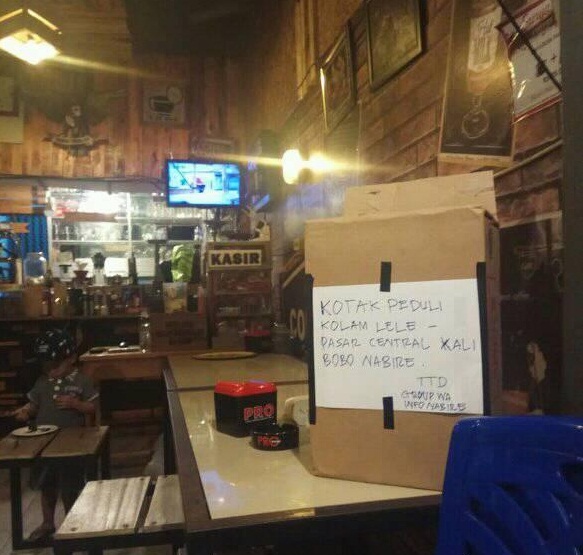 KASIR
CO
KOTAK PEDULI
KOLAM LELE –
PASAR CENTRAL KALI
BOBO NABIRE.
TTD
GROUP WA
INFO NABIRE
PRO
PRO